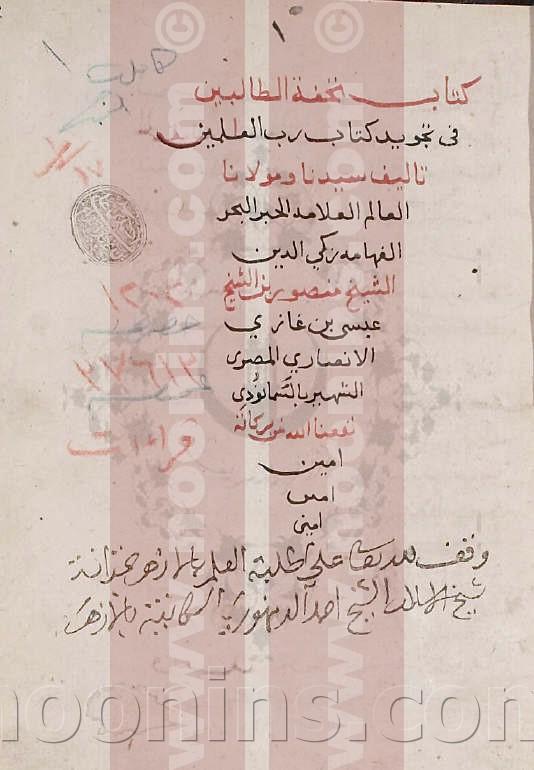 ١
كتاب تحفة الطالبين
فى تجويد كتاب رب العلمين
تاليف سيدنا ومولانا
العالم العلامه الحبر البحر
الفهامه زكي الدين
الشيخ منصور بن الشيخ
عيسى بن غازي
الانصاري المصرى
الشهير بالسَّمانُودى
نفعنا الله من بركاته
امين
امين
امين
وقف لله تعا على طلبة العلم بالازهر بخزانة
شيخ الاسلام الشيخ احمد الدمنهوري الكائنة بالازهر
قراءات
www.noonins.com ©
noonins.com